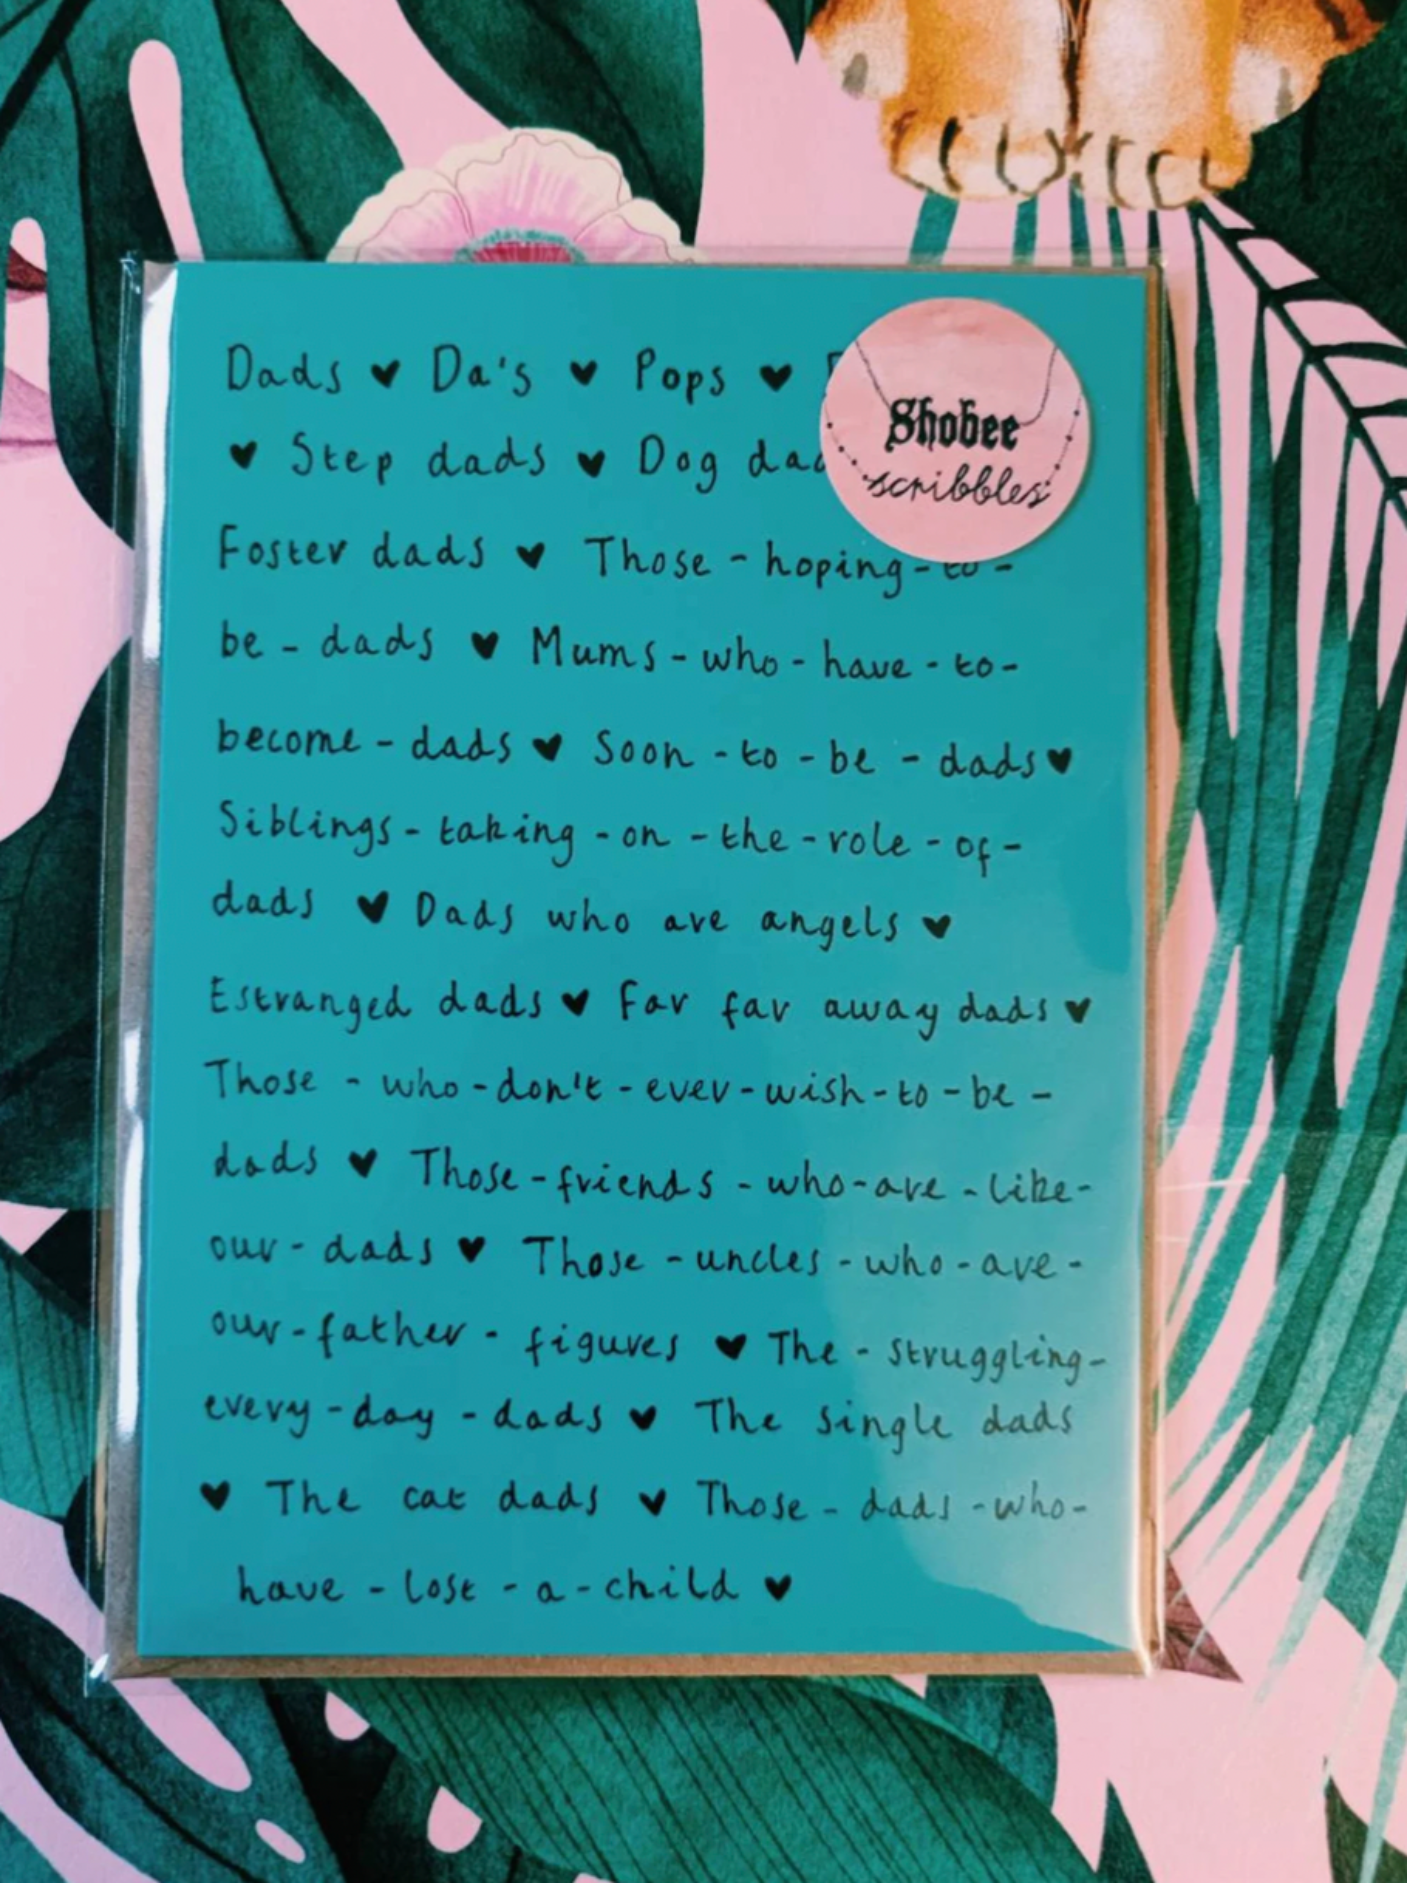 Dads ♥ Da's ♥ Pops ♥
♥ Step dads ♥ Dog
Foster dads ♥ Those - hoping - to -
be - dads ♥ Mums - who - have - to -
become - dads ♥ Soon - to - be - dads ♥
Siblings - taking - on - the - role - of -
dads ♥ Dads who are angels ♥
Estranged dads ♥ Far far away dads ♥
Those - who - don't - ever - wish - to - be -
dads ♥ Those - friends - who - are - like -
our - dads ♥ Those - uncles - who - are -
our - father - figures ♥ The - struggling -
every - day - dads ♥ The single dads
♥ The cat dads ♥ Those - dads - who -
have - lost - a - child ♥
Shobee
scribbles